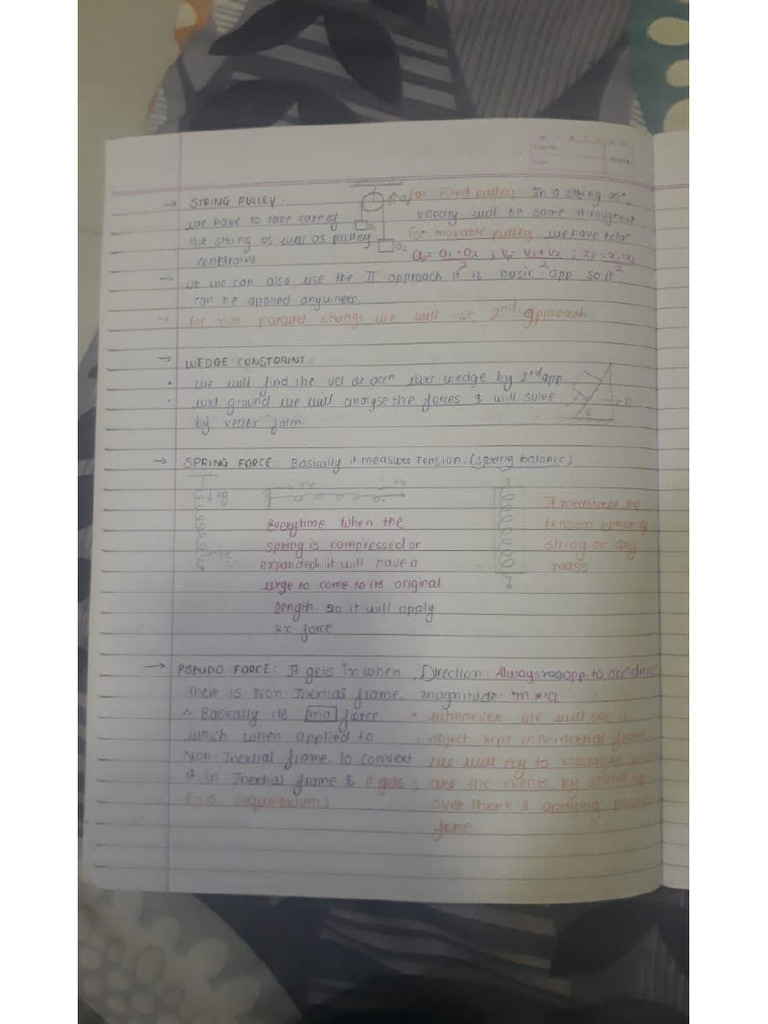 → STRING PULLEY -
we have to take care of
the string as well as pulley
constraint
for fixed pulley In a string acc,
velocity will be same throughout
for movable pulley we have
ap = a1 + a2 / 2 ; Vp = V1 + V2 / 2 ;
→ or we can also use the II approach it is basic app. so it
can be applied anywhere.
→ for non parallel strings we will use 2nd approach
→ WEDGE CONSTRAINT:
• we will find the vel or accn wrt wedge by 2nd app.
• wrt ground we will analyse the forces & will solve
by vector form.
→ SPRING FORCE: Basically it measure Tension. (spring balance)
Everytime when the
spring is compressed or
expanded it will have a
urge to come to its original
length so it will apply
kx force
It measures the
tension either of
string or any
mass
→ PSEUDO FORCE: It gets in when
there is Non-Inertial frame.
∴ Basically its ma force
which when applied to
Non-Inertial frame to convert
it in Inertial frame & it gets
(equilibrium)
, Direction: Always opp. to acc
magnitude - m × a
• whenever we will see a
object kept in frame
we will try to visualize
the events by
over there & applying
force